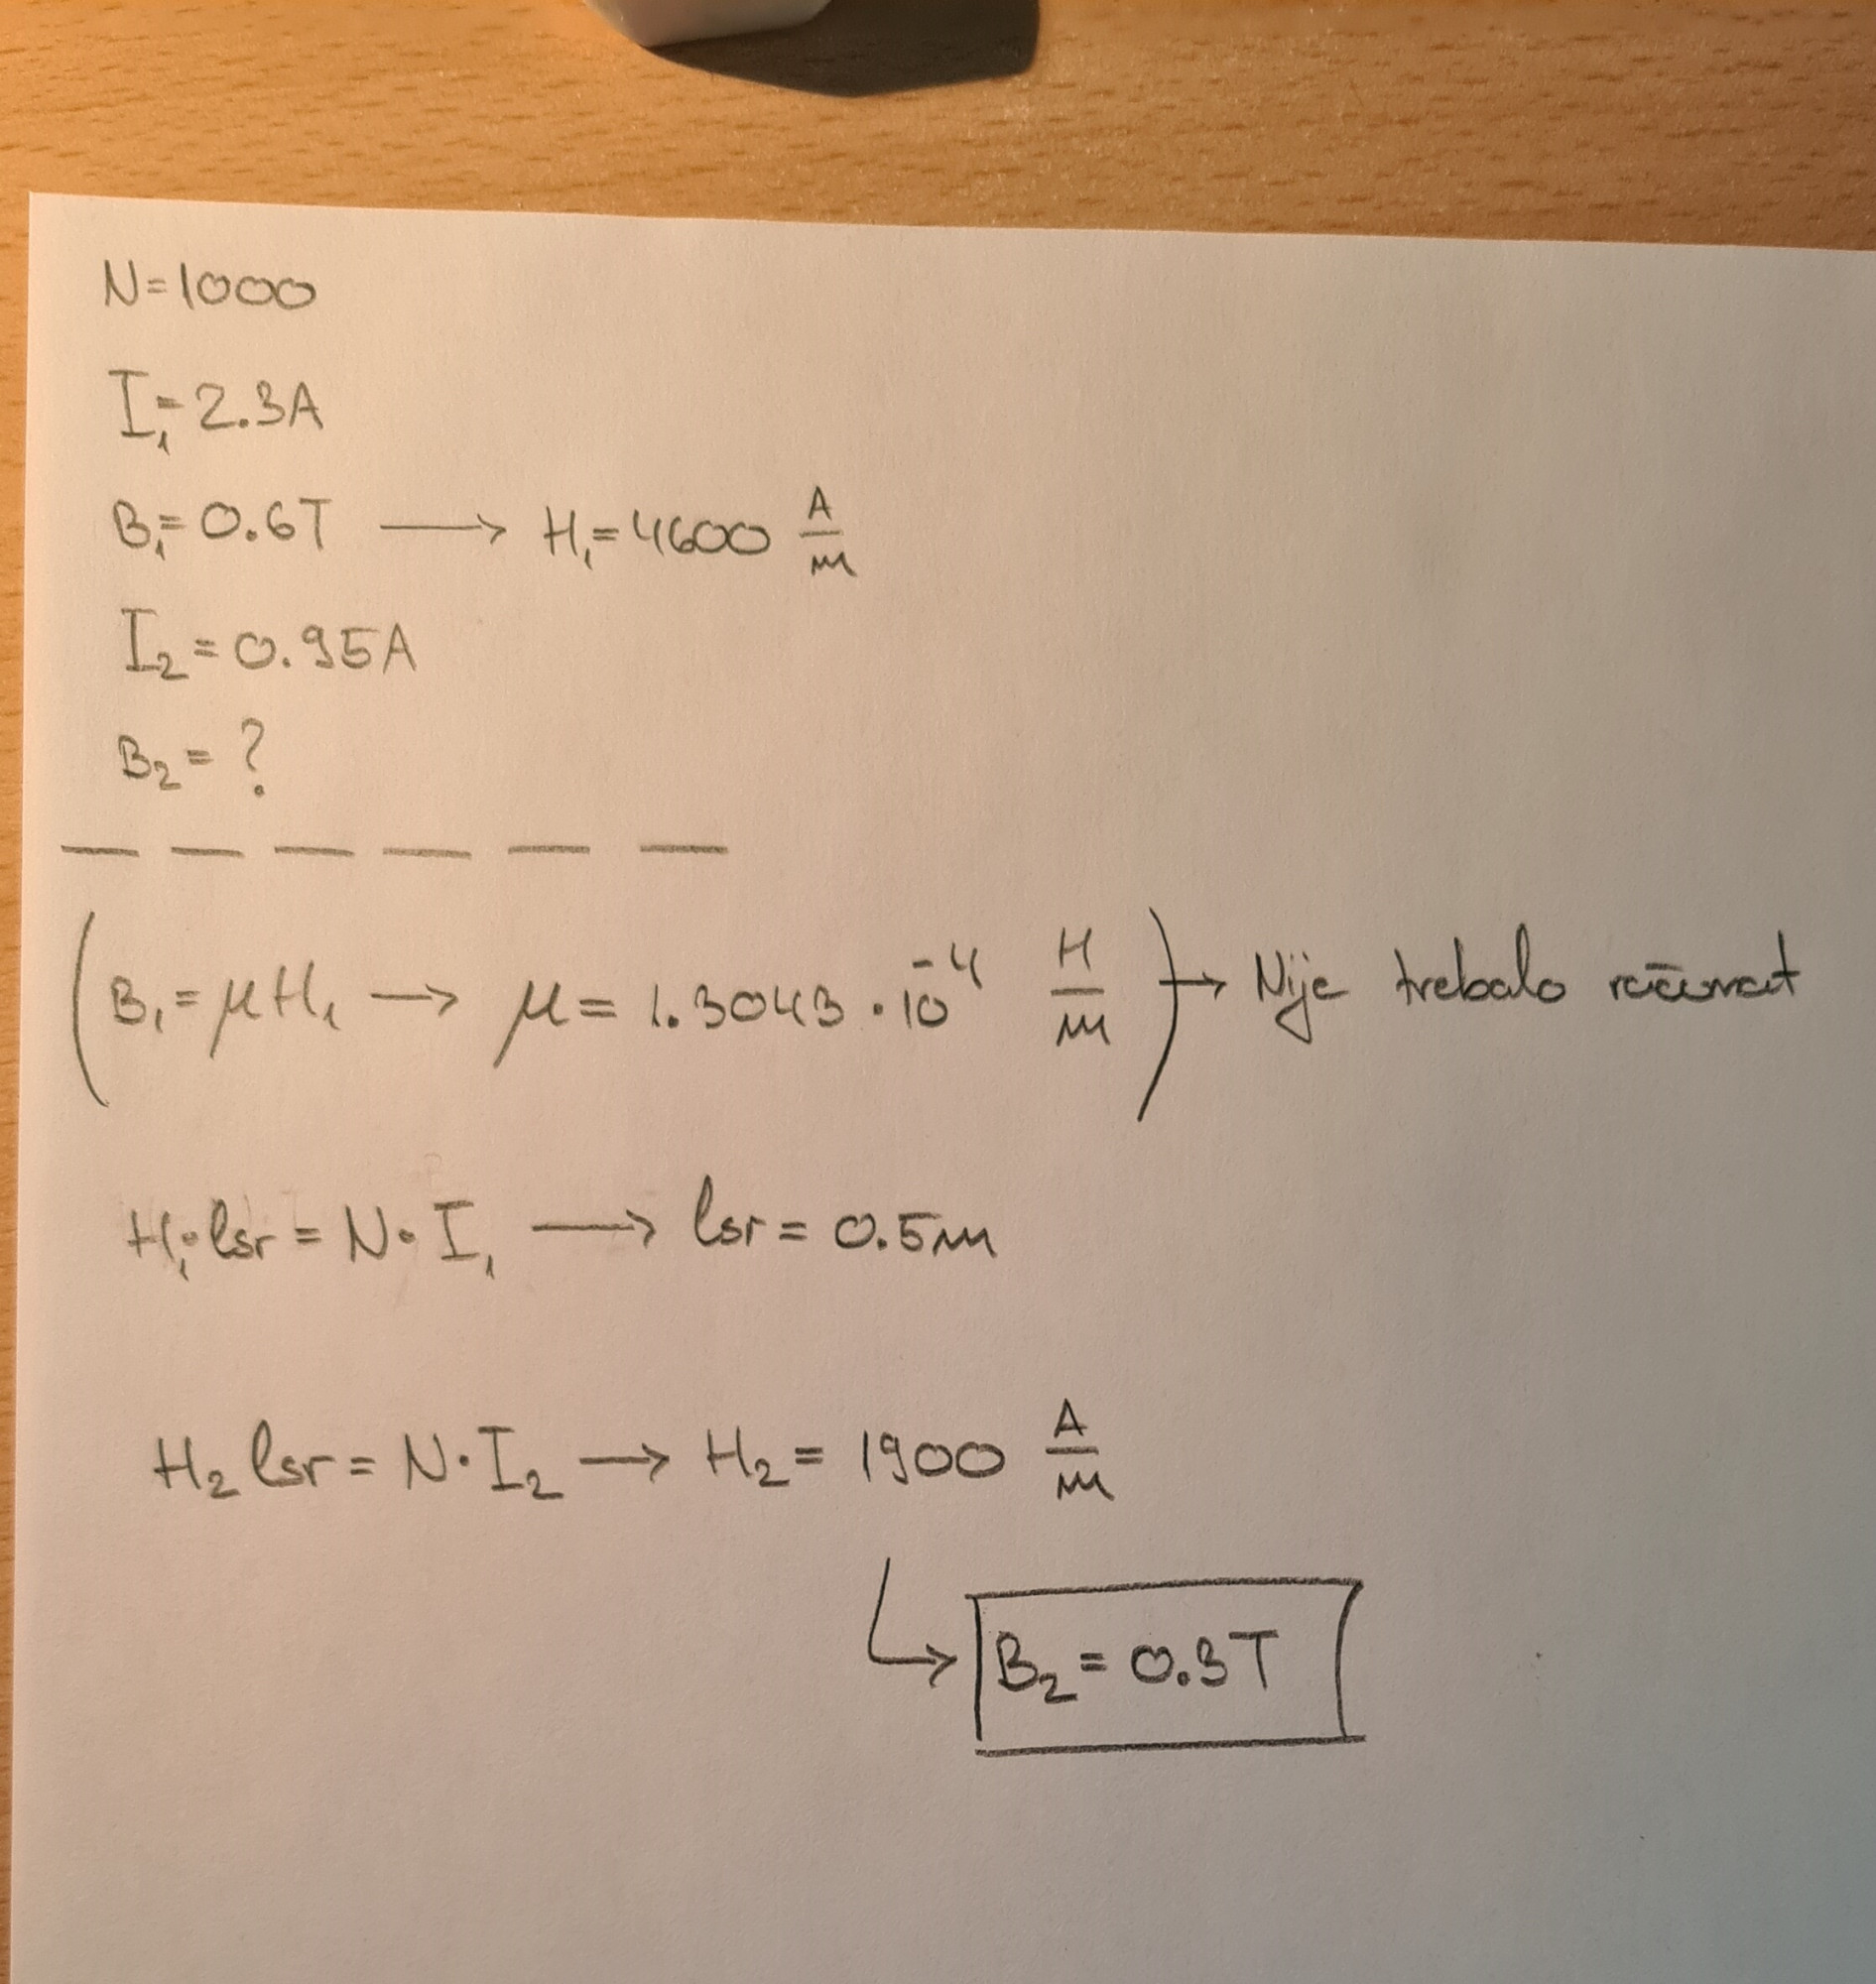 N=1000
I₁=2.3A
B₁=0.6T → H₁=4600 A/m
I₂=0.95A
B₂=?
(B₁=μH₁ → μ=1.3043·10⁻⁴ H/m) → Nije trebalo računat
H₁·lsr=N·I₁ → lsr=0.5m
H₂lsr=N·I₂ → H₂=1900 A/m
↳ B₂=0.3T